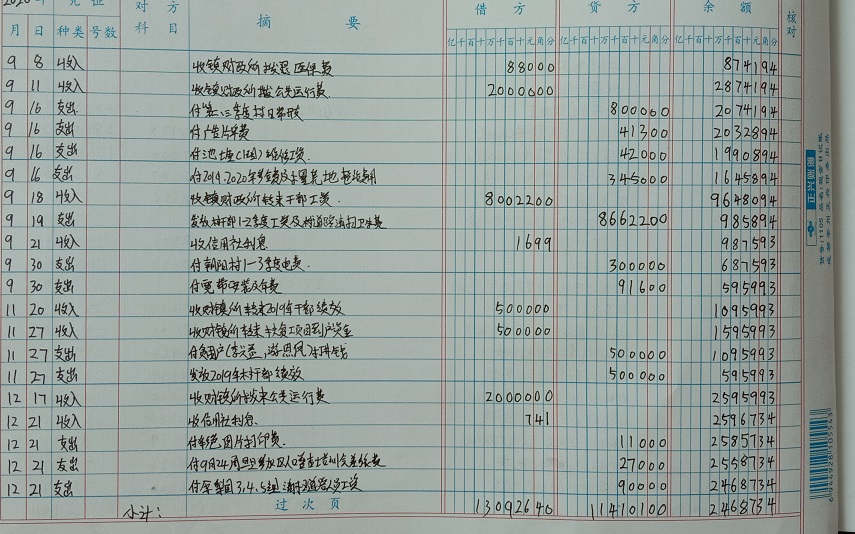 2020年 凭证 对方科目 摘要 借方 贷方 余额 核对
月 日 种类 号数 亿千百十万千百十元角分 亿千百十万千百十元角分 亿千百十万千百十元角分
9 8 收入 收镇财政所拨 医保费 88000 874194
9 11 收入 收镇财政所拨公共运行费 2000000 2874194
9 16 支出 付第二三季度村日常 800000 2074194
9 16 支出 付广告片费 41300 2032894
9 16 支出 付池塘(1组) 工资. 42000 1990894
9 16 支出 付2019.2020年 地 345000 1645894
9 18 收入 收镇财政所转来干部工资. 8002200 9648094
9 19 支出 发放村干部1-2季度工资及 卫生费 8662200 985894
9 21 收入 收信用社利息 1699 987593
9 30 支出 付朝阳村1-3季度电费. 300000 687593
9 30 支出 付宽带安装及年费 91600 595993
11 20 收入 收财镇所转来2019年干部绩效 500000 1095993
11 27 收入 收财镇所转来 项目到户资金 500000 1595993
11 27 支出 付贫困户( 游恩凤) 钱 500000 1095993
11 27 支出 发放2019年村干部绩效 500000 595993
12 17 收入 收财镇所转来公共运行费 2000000 2595993
12 21 收入 收信用社利息. 741 2596734
12 21 支出 付彩色图片打印费. 11000 2585734
12 21 支出 付9月24 参加 人口普查培训 费 27000 2558734
12 21 支出 付 梨园3.4.5组 工资 90000 2468734
小计: 过次页 13092640 11410100 2468734
6944928105543